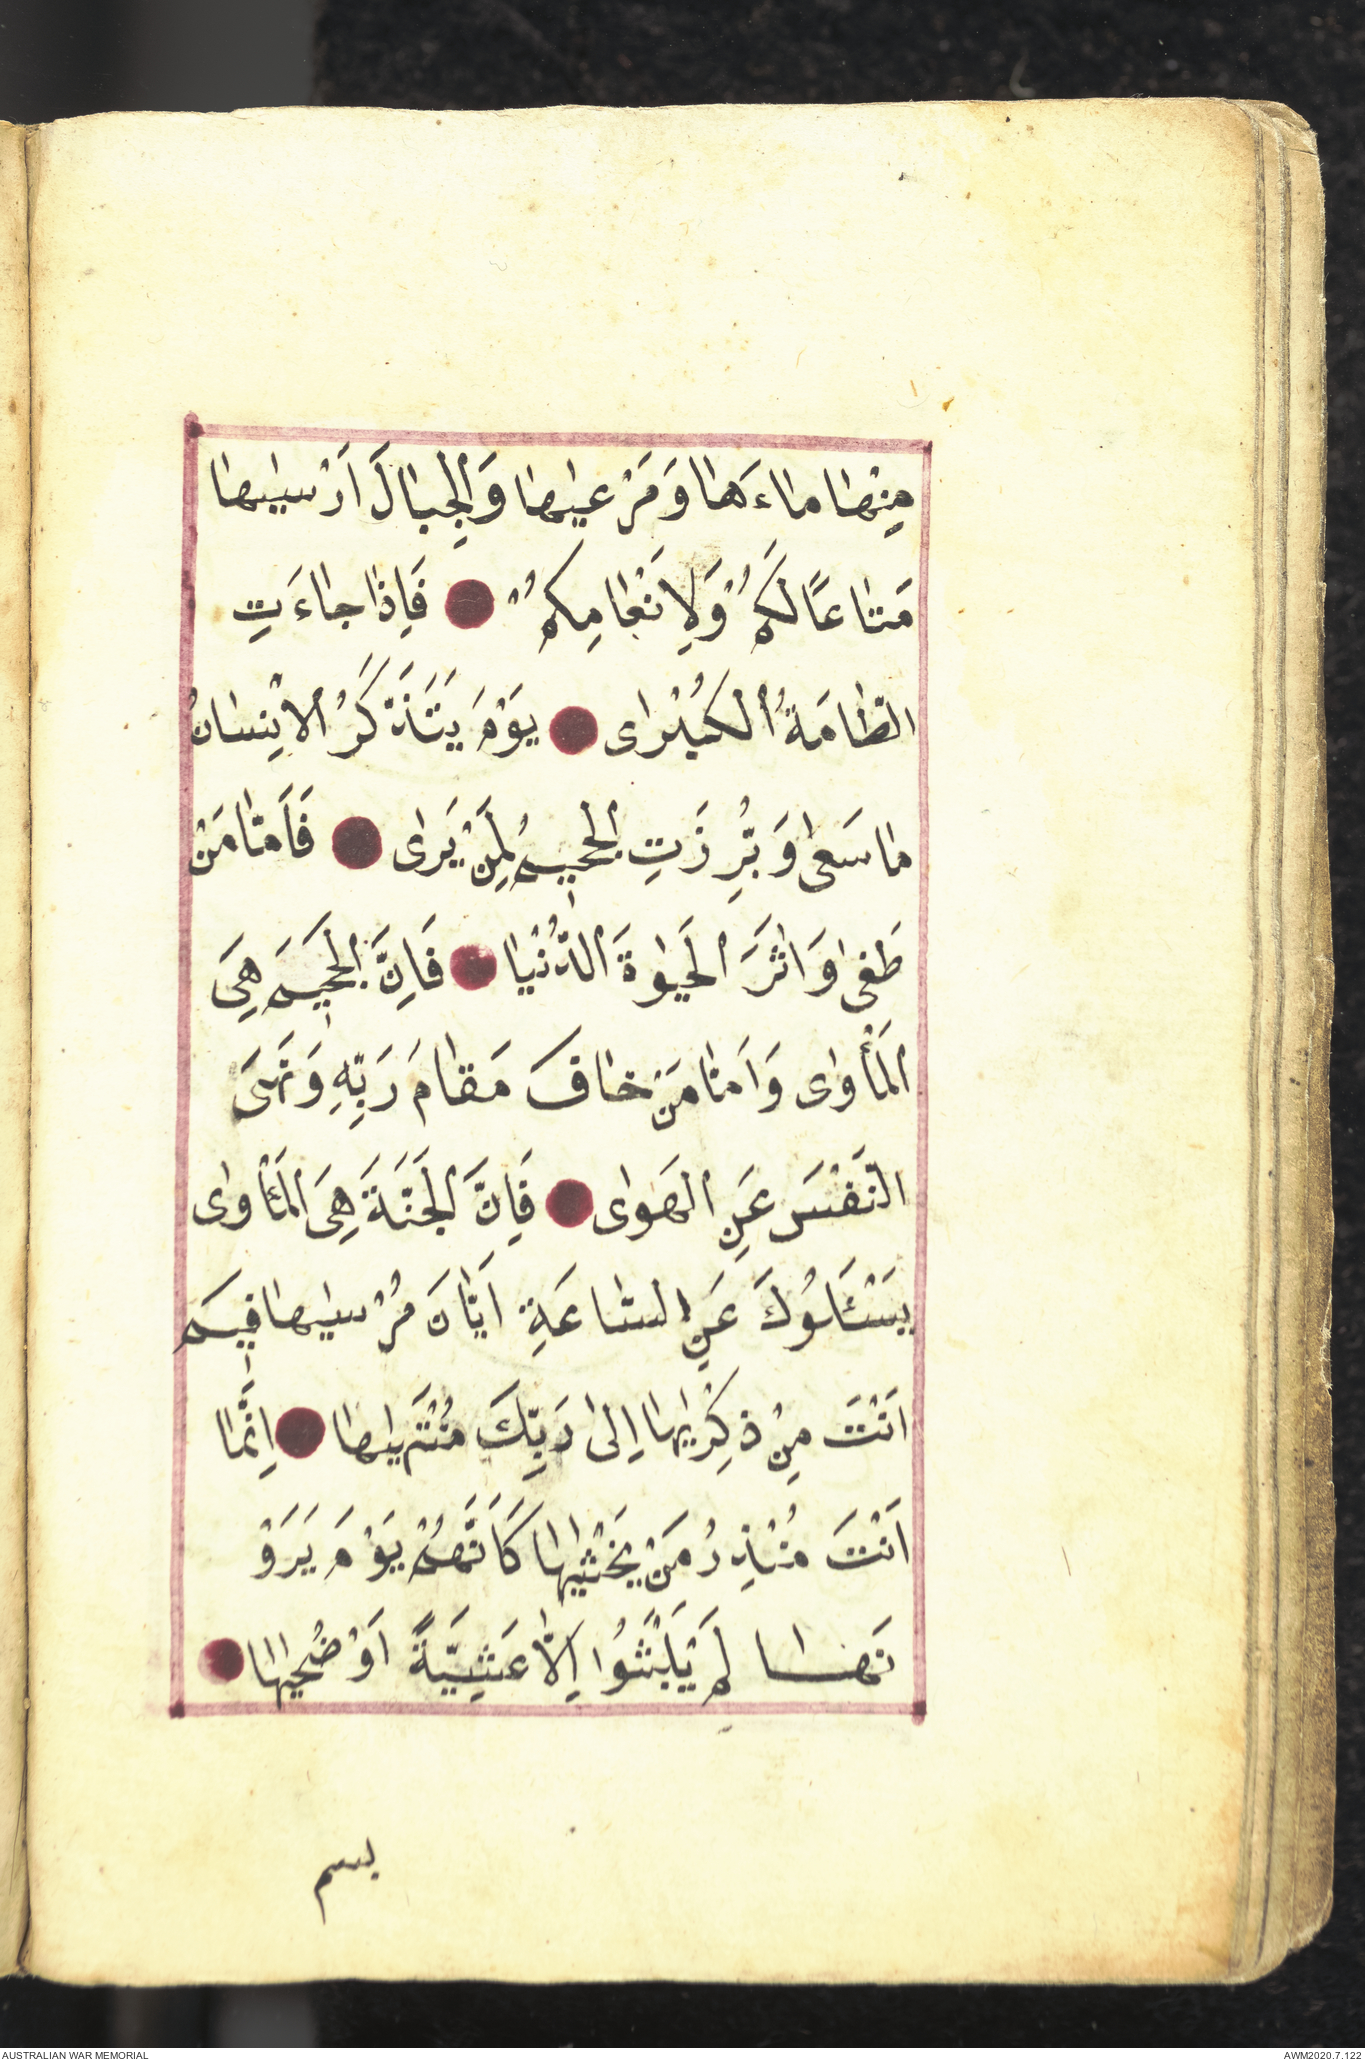 مِنْهٰا مٰاءَهٰا وَمَرْعٰيهٰا وَالْجِبٰالَ اَرْسٰيهٰا
مَتٰاعًا لَكُمْ وَلِاَنْعٰامِكُمْ ● فَاِذٰا جٰاءَتِ
الطّٰامَةُ الْكُبْرٰى ● يَوْمَ يَتَذَكَّرُ الْاِنْسٰانُ
مٰا سَعٰى وَبُرِّزَتِ الْجَحيمُ لِمَنْ يَرٰى ● فَاَمّٰا مَنْ
طَغٰى وَاٰثَرَ الْحَيٰوةَ الدُّنْيٰا ● فَاِنَّ الْجَحيمَ هِىَ
الْمَأْوٰى وَاَمّٰا مَنْ خٰافَ مَقٰامَ رَبِّهِ وَنَهَى
النَّفْسَ عَنِ الْهَوٰى ● فَاِنَّ الْجَنَّةَ هِىَ الْمَأْوٰى
يَسْئَلُوكَ عَنِ السّٰاعَةِ اَيّٰانَ مُرْسٰيهٰا فيمَ
اَنْتَ مِنْ ذِكْرٰيهٰا اِلٰى رَبِّكَ مُنْتَهٰيهٰا ● اِنَّمٰا
اَنْتَ مُنْذِرُ مَنْ يَخْشٰيهٰا كَاَنَّهُمْ يَوْمَ يَرَوْ
نَهٰا لَمْ يَلْبَثُوا اِلّٰا عَشِيَّةً اَوْ ضُحٰيهٰا ●
بسم
AUSTRALIAN WAR MEMORIAL
AWM2020.7.122